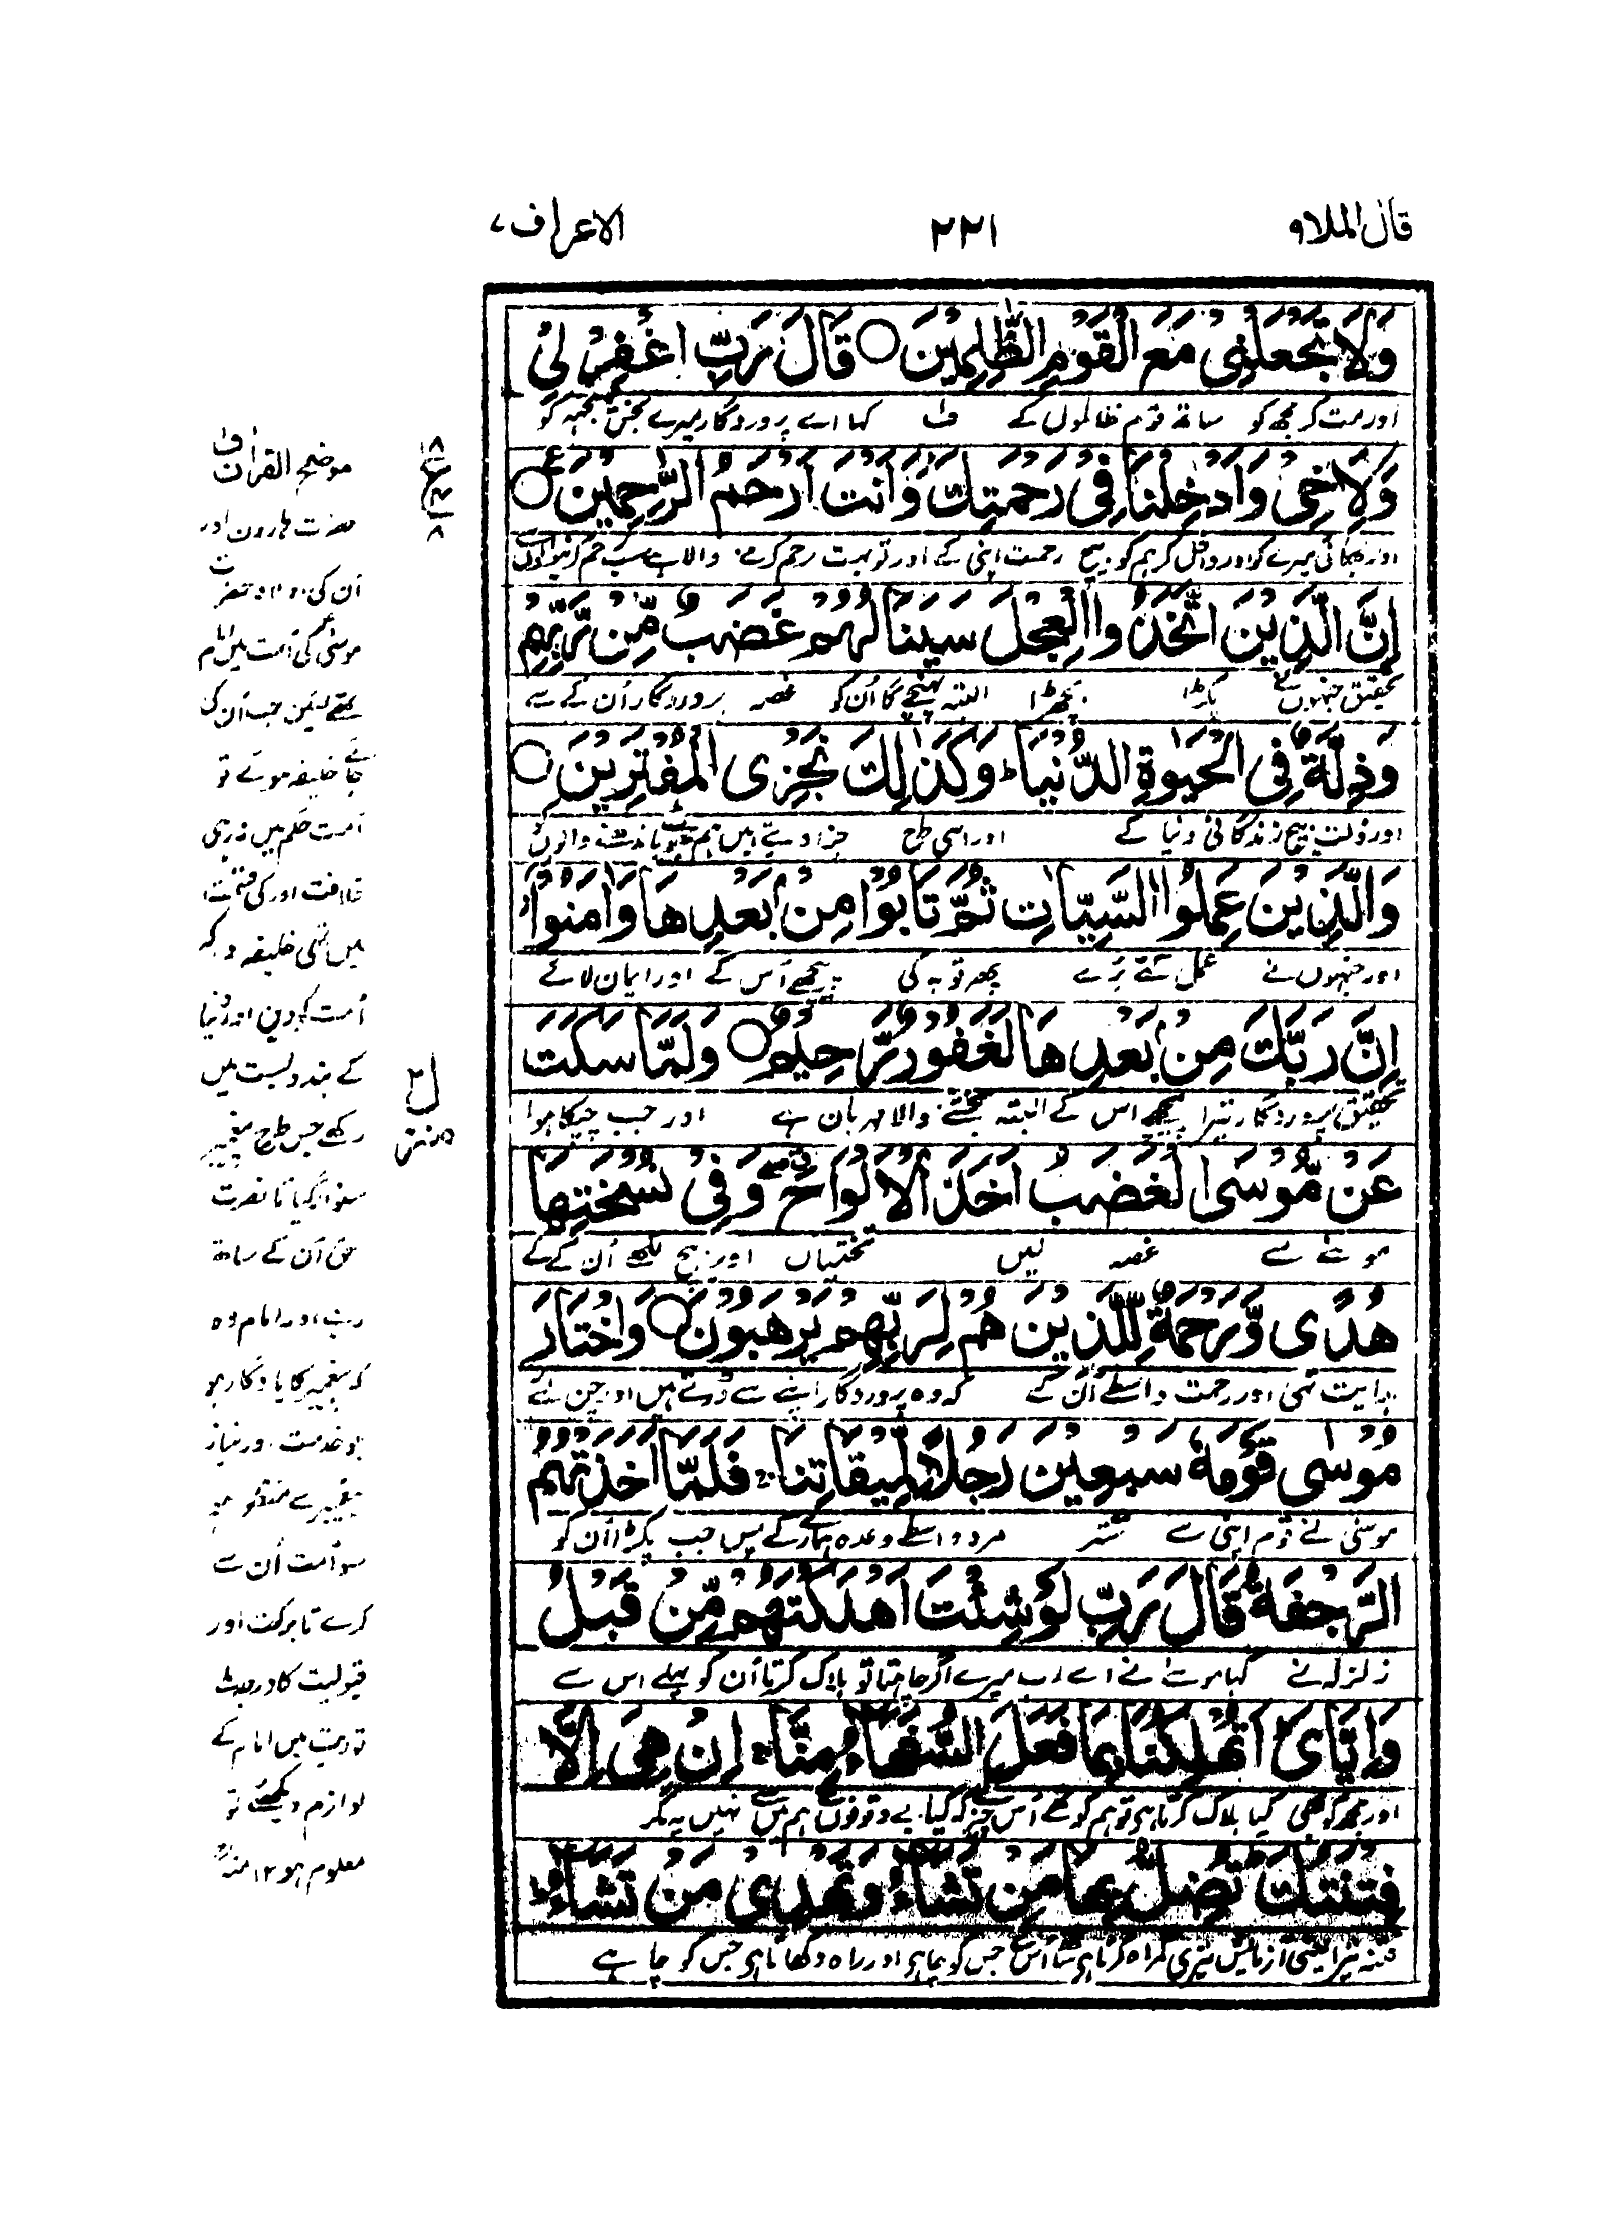 قال الملا ۹
۲۲۱
الاعراف ۷
وَلَا تَجْعَلْنِي مَعَ الْقَوْمِ الظّٰلِمِيْنَ ○ قَالَ رَبِّ اغْفِرْ لِيْ
اور مت کر مجھ کو ساتھ قوم ظالموں کے ف کہا اے پروردگار میرے بخش مجھ کو
وَلِاَخِيْ وَاَدْخِلْنَا فِيْ رَحْمَتِكَ وَاَنْتَ اَرْحَمُ الرّٰحِمِيْنَ ○
اور بھائی میرے کو اور داخل کر ہم کو بیچ رحمت اپنی کے اور تو بہت رحم کرنے والا ہے سب رحم کرنیوالوں سے
اِنَّ الَّذِيْنَ اتَّخَذُوا الْعِجْلَ سَيَنَالُهُمْ غَضَبٌ مِّنْ رَّبِّهِمْ
تحقیق جنہوں نے پکڑا بچھڑا البتہ پہنچے گا اُن کو غصہ پروردگار اُن کے سے
وَذِلَّةٌ فِي الْحَيٰوةِ الدُّنْيَا ؕ وَكَذٰلِكَ نَجْزِي الْمُفْتَرِيْنَ ○
اور ذلت بیچ زندگانی دنیا کے اور اسی طرح جزا دیتے ہیں ہم جھوٹ باندھنے والوں کو
وَالَّذِيْنَ عَمِلُوا السَّيِّاٰتِ ثُمَّ تَابُوْا مِنْۢ بَعْدِهَا وَاٰمَنُوْۤا
اور جنہوں نے عمل کئے بُرے پھر توبہ کی پیچھے اُس کے اور ایمان لائے
اِنَّ رَبَّكَ مِنْۢ بَعْدِهَا لَغَفُوْرٌ رَّحِيْمٌ ○ وَلَمَّا سَكَتَ
تحقیق پروردگار تیرا پیچھے اس کے البتہ بخشنے والا مہربان ہے اور جب چپکا ہوا
عَنْ مُّوْسَى الْغَضَبُ اَخَذَ الْاَلْوَاحَ ۖ وَفِيْ نُسْخَتِهَا
موسےٰ سے غصہ لیں تختیاں اور بیچ لکھے اُن کے کے
هُدًى وَّرَحْمَةٌ لِّلَّذِيْنَ هُمْ لِرَبِّهِمْ يَرْهَبُوْنَ ○ وَاخْتَارَ
ہدایت تھی اور رحمت واسطے اُن کے کہ وہ پروردگار اپنے سے ڈرتے ہیں اور چن لئے
مُوْسٰى قَوْمَهٗ سَبْعِيْنَ رَجُلًا لِّمِيْقَاتِنَا ۚ فَلَمَّاۤ اَخَذَتْهُمُ
موسیٰ نے قوم اپنی سے ستر مرد واسطے وعدہ ہمارے کے پس جب پکڑا اُن کو
الرَّجْفَةُ قَالَ رَبِّ لَوْ شِئْتَ اَهْلَكْتَهُمْ مِّنْ قَبْلُ
زلزلہ نے کہا موسےٰ نے اے رب میرے اگر چاہتا تو ہلاک کرتا اُن کو پہلے اس سے
وَاِيَّايَ ؕ اَتُهْلِكُنَا بِمَا فَعَلَ السُّفَهَآءُ مِنَّا ۚ اِنْ هِيَ اِلَّا
اور مجھ کو بھی کیا ہلاک کرتا ہے تو ہم کو اُس چیز کہ کیا بے وقوفوں نے ہم میں سے نہیں یہ مگر
فِتْنَتُكَ ؕ تُضِلُّ بِهَا مَنْ تَشَآءُ وَتَهْدِيْ مَنْ تَشَآءُ ؕ
فتنہ تیرا یعنی آزمائش تیری گمراہ کرتا ہے ساتھ اُس کے جس کو چاہے اور راہ دکھاتا ہے جس کو چاہے
ع
منزل ۲
موضح القرآن ف
حضرت ہارون اور
اُن کی اولاد حضرت
موسٰی کی اُمت میں امام
تھے لیکن جب اُن کی
جائے خلیفہ ہوئے تو
اُمت حکم میں نہ رہی
خلافت اور کی قسمت
میں تھی خلیفہ وہ کہ
اُمت کو دین اور دنیا
کے بندوبست میں
رکھے جس طرح پیغمبر
سنوار گیا تا نصرت
حق اُن کے ساتھ
رہے اور امام وہ
کہ پیغمبر کا یادگار ہو
جو خدمت اور نیاز
پیغمبر سے منظور ہو
سو اُمت اُن سے
کرے تا برکت اور
قبولیت کا درجہ
توریت میں امام کے
لوازم دیکھئے تو
معلوم ہو ۱۲ منہ